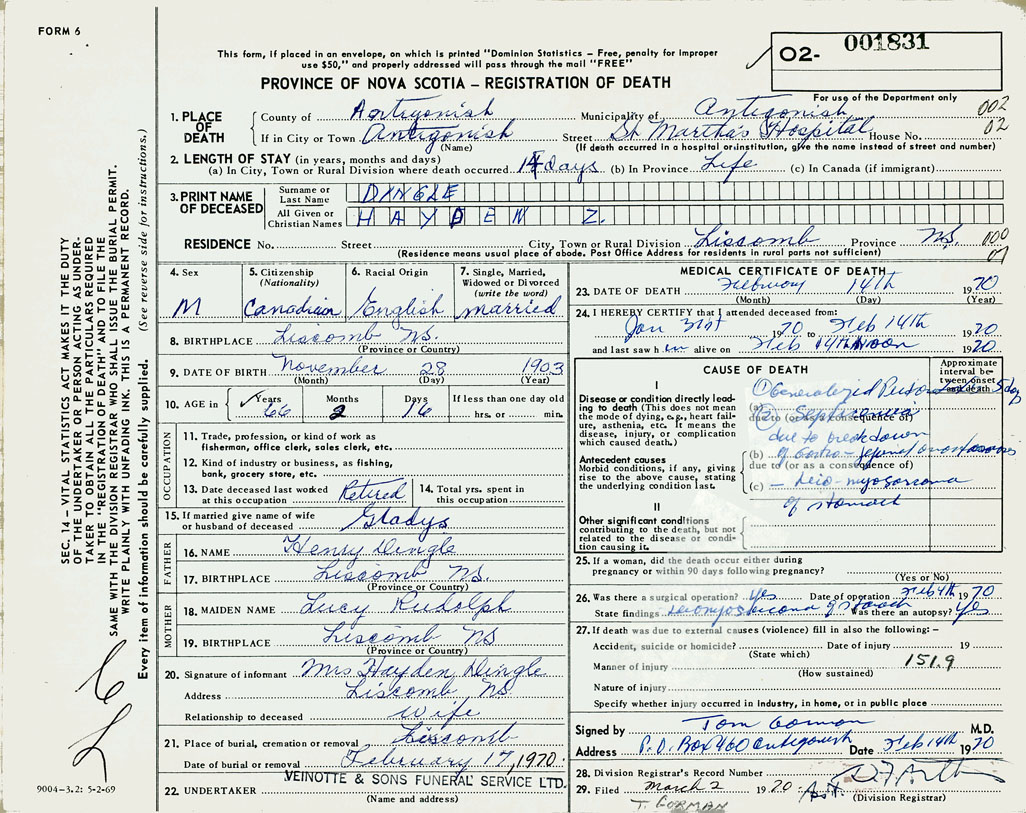 FORM 6
This form, if placed in an envelope, on which is printed "Dominion Statistics – Free, penalty for improper
use $50," and properly addressed will pass through the mail "FREE"
O2- 001831
PROVINCE OF NOVA SCOTIA – REGISTRATION OF DEATH
For use of the Department only
002
02
1. PLACE OF DEATH
County of Antigonish Municipality of Antigonish
If in City or Town Antigonish Street St Martha's Hospital House No.
(Name) (If death occurred in a hospital or institution, give the name instead of street and number)
2. LENGTH OF STAY (in years, months and days)
(a) In City, Town or Rural Division where death occurred 14 days (b) In Province Life (c) In Canada (if immigrant)
3. PRINT NAME OF DECEASED
Surname or Last Name DINGLE
All Given or Christian Names HAYDEN Z.
RESIDENCE No. Street City, Town or Rural Division Liscomb Province NS. 000
07
(Residence means usual place of abode. Post Office Address for residents in rural parts not sufficient)
4. Sex M
5. Citizenship (Nationality) Canadian
6. Racial Origin English
7. Single, Married, Widowed or Divorced (write the word) married
8. BIRTHPLACE Liscomb NS.
(Province or Country)
9. DATE OF BIRTH November 28 1903
(Month) (Day) (Year)
10. AGE in Years 66 Months 2 Days 16 If less than one day old
hrs. or min.
OCCUPATION
11. Trade, profession, or kind of work as
fisherman, office clerk, sales clerk, etc.
12. Kind of industry or business, as fishing,
bank, grocery store, etc.
13. Date deceased last worked at this occupation Retired
14. Total yrs. spent in this occupation
15. If married give name of wife
or husband of deceased Gladys
FATHER
16. NAME Henry Dingle
17. BIRTHPLACE Liscomb NS.
(Province or Country)
MOTHER
18. MAIDEN NAME Lucy Rudolph
19. BIRTHPLACE Liscomb NS
(Province or Country)
20. Signature of informant Mrs Hayden Dingle
Address Liscomb NS.
Relationship to deceased Wife
21. Place of burial, cremation or removal Liscomb
Date of burial or removal February 17, 1970.
VEINOTTE & SONS FUNERAL SERVICE LTD.
22. UNDERTAKER
(Name and address)
MEDICAL CERTIFICATE OF DEATH
23. DATE OF DEATH February 14th 1970
(Month) (Day) (Year)
24. I HEREBY CERTIFY that I attended deceased from:
Jan 31st 1970 to Feb 14th 1970
and last saw him alive on Feb 14th Noon 1970
CAUSE OF DEATH
Approximate interval between onset and death
I
Disease or condition directly leading to death (This does not
mean the mode of dying, e.g., heart failure, asthenia, etc. It means the
disease, injury, or complication
which caused death.)
(a) 1 Generalized 5 day
2 Septicaemia
due to (or as a consequence of)
due to breakdown
(b) of Gastro-jejunal
due to (or as a consequence of)
(c) – Leio-myosarcoma
of stomach
Antecedent causes
Morbid conditions, if any, giving
rise to the above cause, stating
the underlying condition last.
II
Other significant conditions
contributing to the death, but not
related to the disease or condition
causing it.
25. If a woman, did the death occur either during
pregnancy or within 90 days following pregnancy?
(Yes or No)
26. Was there a surgical operation? Yes Date of operation Feb 4th 1970
State findings Leiomyosarcoma of stomach Was there an autopsy? Yes
27. If death was due to external causes (violence) fill in also the following: –
Accident, suicide or homicide? Date of injury 19
(State which)
Manner of injury 151.9
(How sustained)
Nature of injury
Specify whether injury occurred in Industry, in home, or in public place
Signed by Tom Gorman M.D.
Address P.O. Box 460 Antigonish Date Feb 14th 1970
28. Division Registrar's Record Number
29. Filed March 2 1970
(Division Registrar)
T. GORMAN
SEC. 14 – VITAL STATISTICS ACT MAKES IT THE DUTY
OF THE UNDERTAKER OR PERSON ACTING AS UNDERTAKER
TO OBTAIN ALL THE PARTICULARS REQUIRED
IN THE "REGISTRATION OF DEATH" AND TO FILE THE
SAME WITH THE DIVISION REGISTRAR WHO SHALL ISSUE THE BURIAL PERMIT.
WRITE PLAINLY WITH UNFADING INK. THIS IS A PERMANENT RECORD.
Every item of information should be carefully supplied. (See reverse side for instructions.)
9004-3.2: 5-2-69